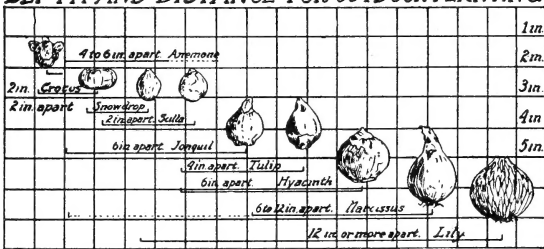 DEPTH AND DISTANCE FOR OUTDOOR PLANTING
1in.
4 to 6in. apart Anemone
2in.
2in. Crocus
3in.
2in apart
Snowdrop
2in apart. Scilla
4in
6in apart Jonquil
5in.
4in. apart. Tulip
6in. apart Hyacinth
6 to 12in. apart. Narcissus
12 in. or more apart. Lily